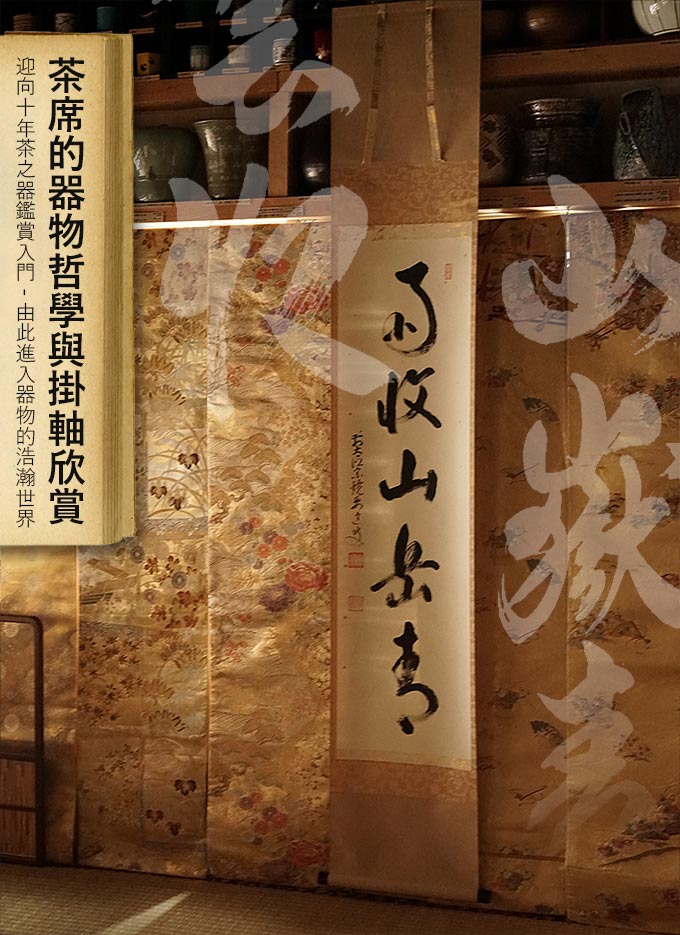 茶席的器物哲學與掛軸欣賞
迎向十年茶之器鑑賞入門-由此進入器物的浩瀚世界
雨收山岳青
收
山嶽青